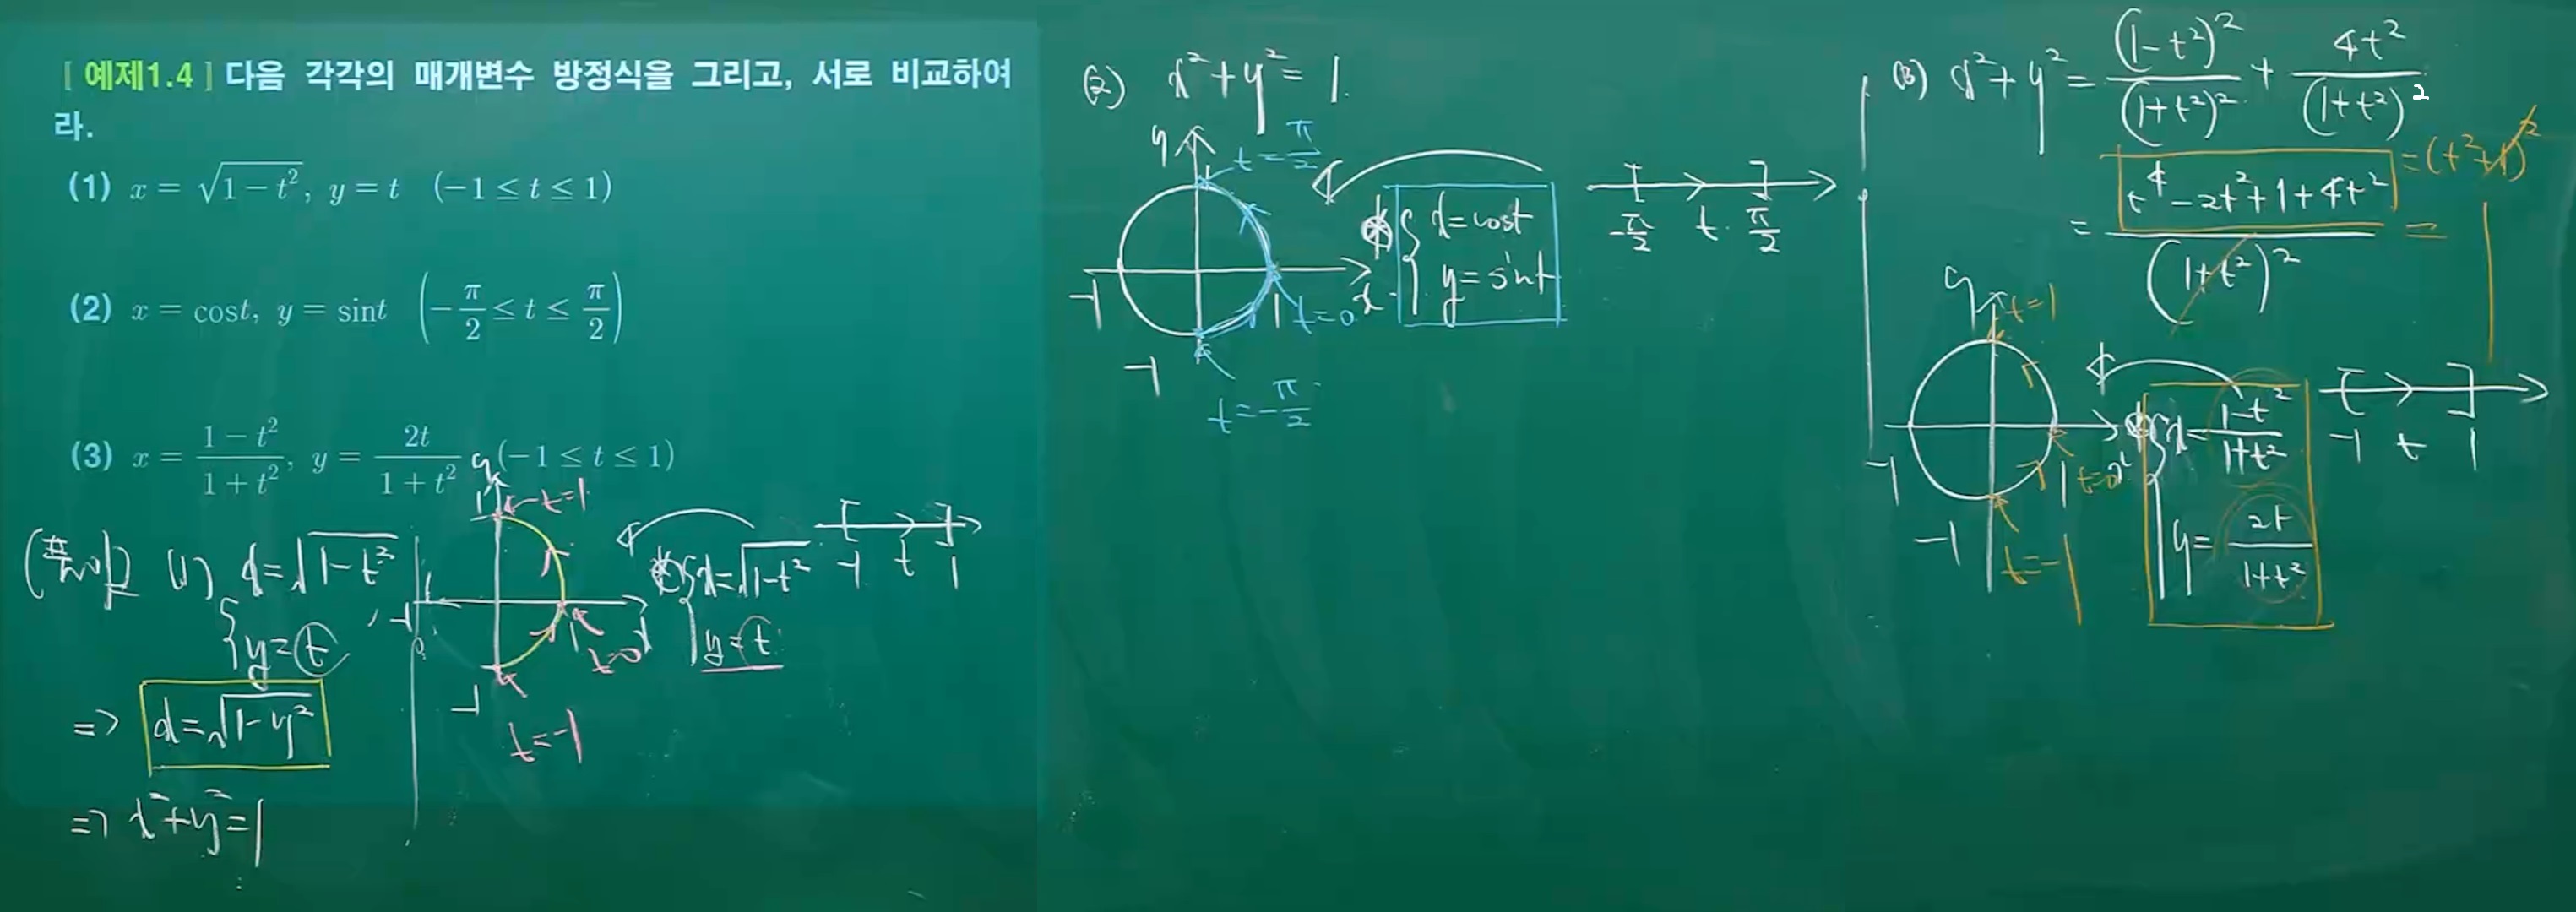 [ 예제1.4 ] 다음 각각의 매개변수 방정식을 그리고, 서로 비교하여
라.
(1) x = √(1 − t²), y = t (−1 ≤ t ≤ 1)
(2) x = cost, y = sint (−π/2 ≤ t ≤ π/2)
(3) x = (1 − t²)/(1 + t²), y = 2t/(1 + t²) (−1 ≤ t ≤ 1)
(풀이) (1) x = √(1−t²)
y = t
=> x = √(1−y²)
=> x² + y² = 1
y
1
t=1
-1
1
x
t=0
-1
t=-1
x = √(1−t²)
y = t
-1 t 1
(2) x² + y² = 1.
y
1
t = π/2
-1
1
t=0
x
-1
t = -π/2
x = cost
y = sint
-π/2 t π/2
(3) x² + y² = (1−t²)²/(1+t²)² + 4t²/(1+t²)²
= (t⁴ − 2t² + 1 + 4t²)/(1+t²)² = 1
= (t²+1)²
y
t=1
-1
1
t=0
x
-1
t=-1
x = (1−t²)/(1+t²)
y = 2t/(1+t²)
-1 t 1